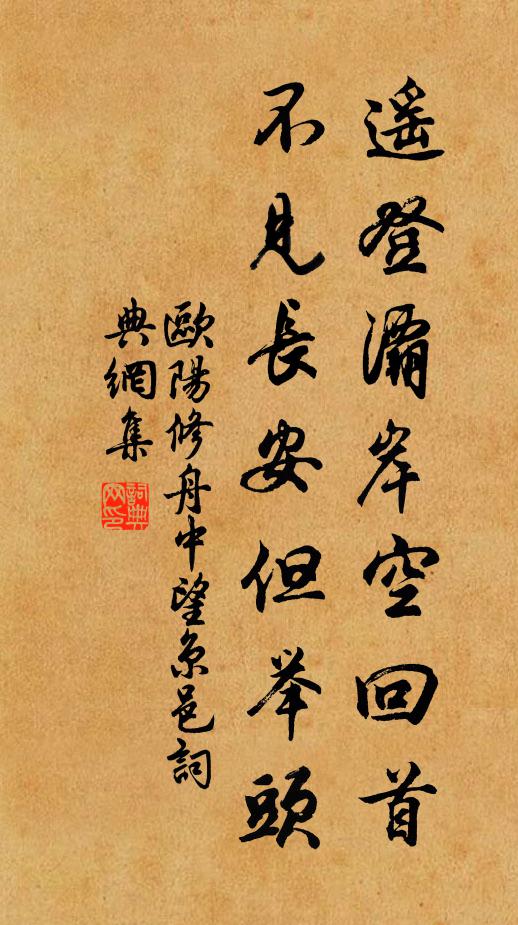 遥登灞岸空回首
不見長安但举頭
歐陽修舟中望京邑詞
典網集
詞典
网印